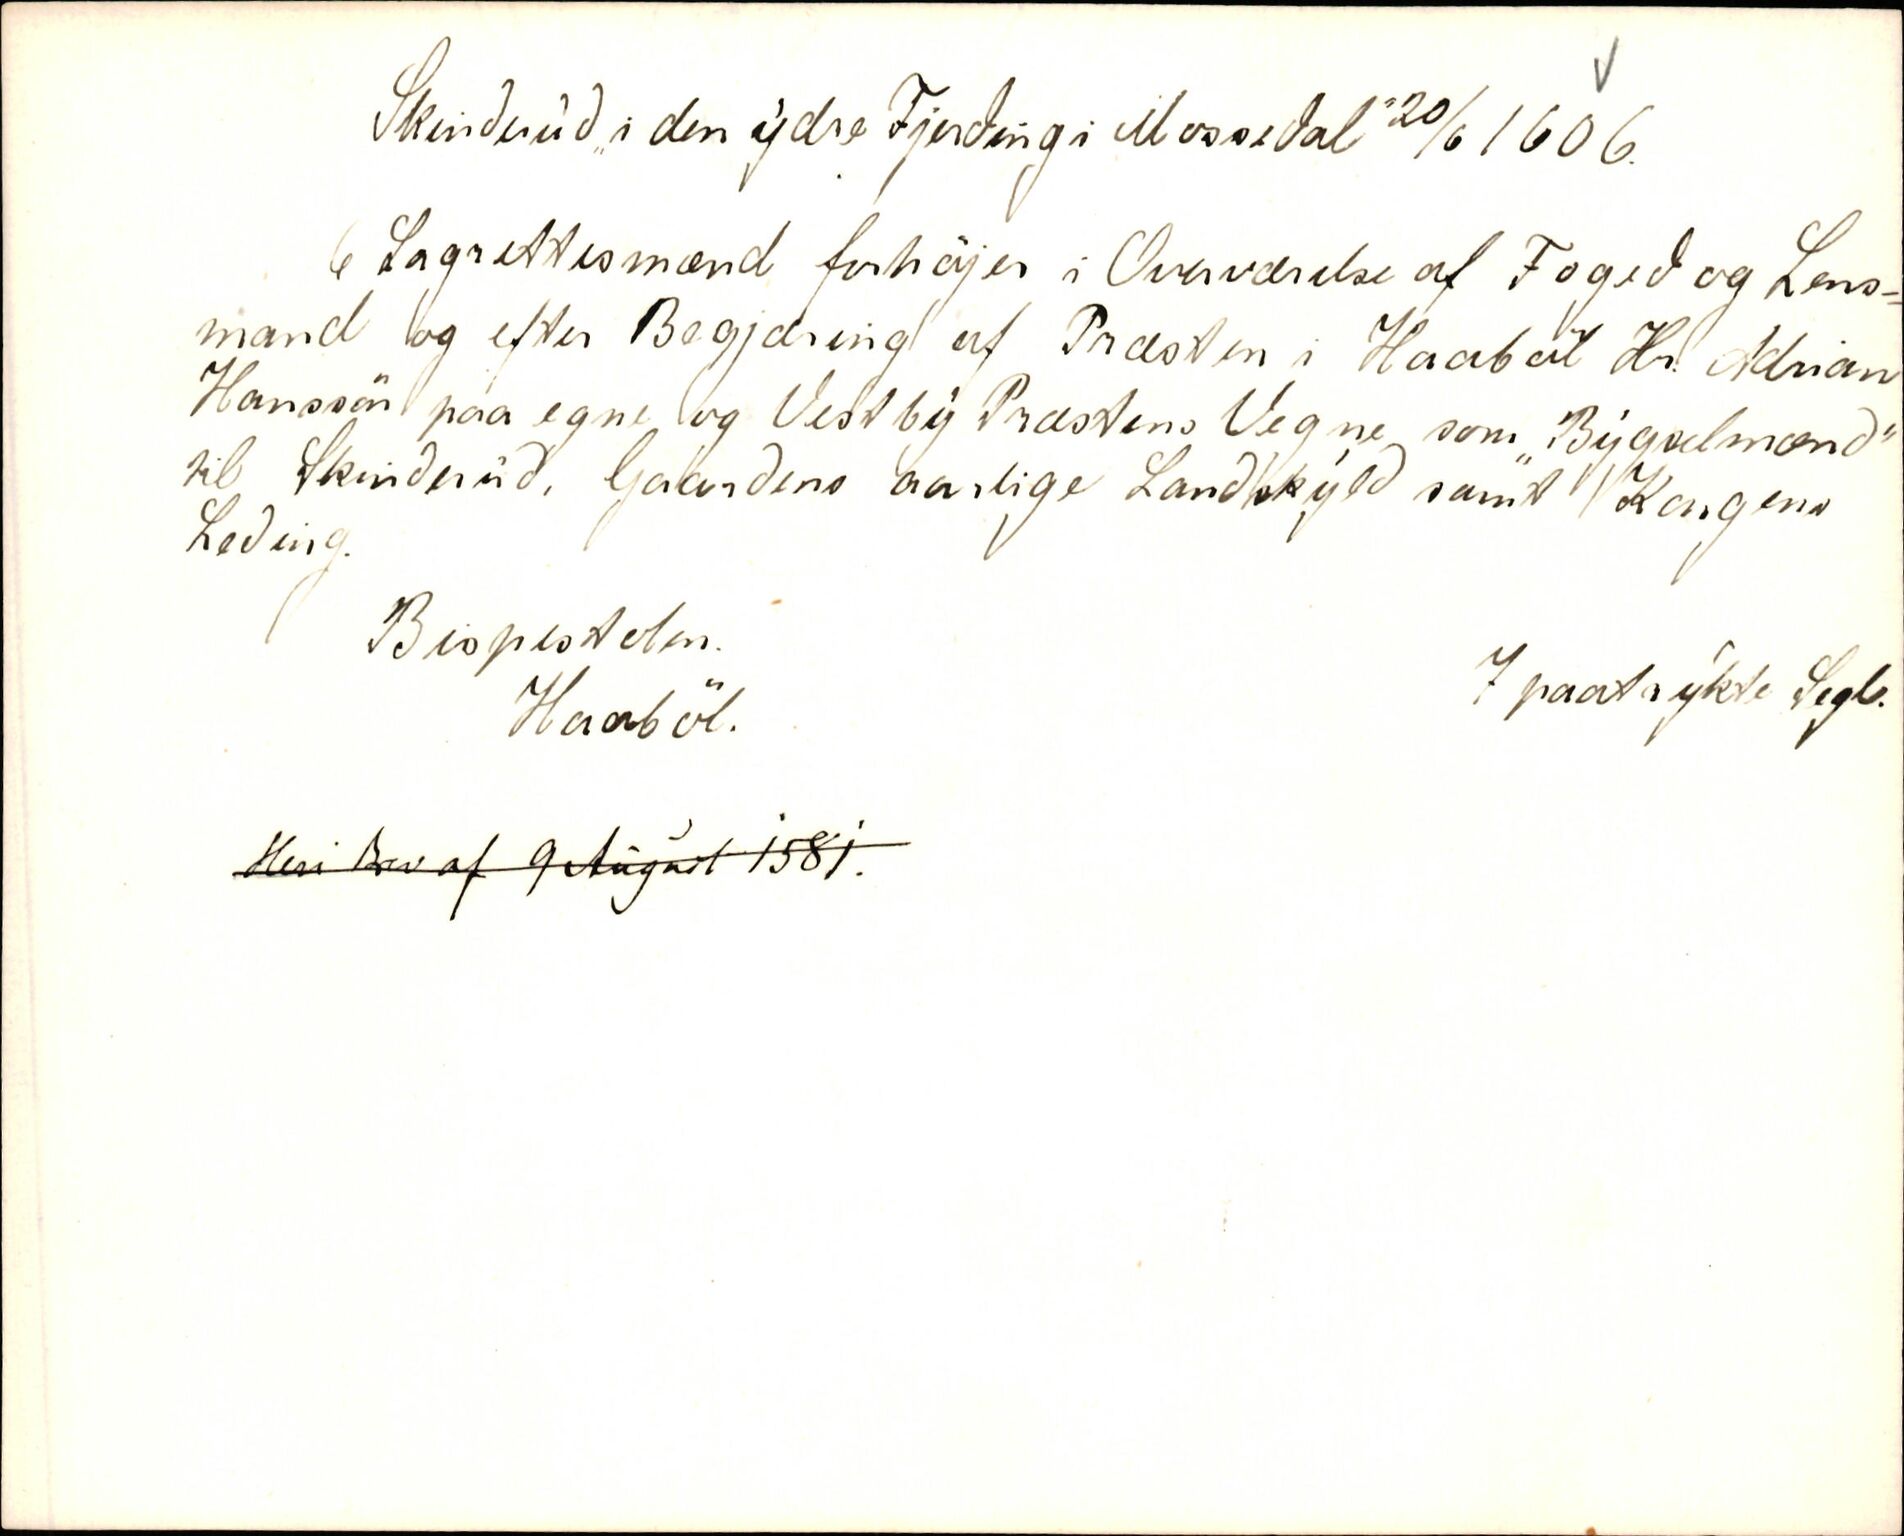 Skinderud „i den ydre Fjerding i Mossedal“ 20/6 1606.
6 Lagrettesmænd forhöjer i Overværelse af Foged og Lens=
mand og efter Begjæring af Præsten i Haaböl Hr. Adrian
Hanssön paa egne og Vestby Præstens Vegne som „Bygselmænd“
til Skinderud, Gaardens aarlige Landskyld samt Kongens
Leding.
Bispestolen.
Haaböl.
7 paatrykte Segl.
Heri Brev af 9 August 1581.